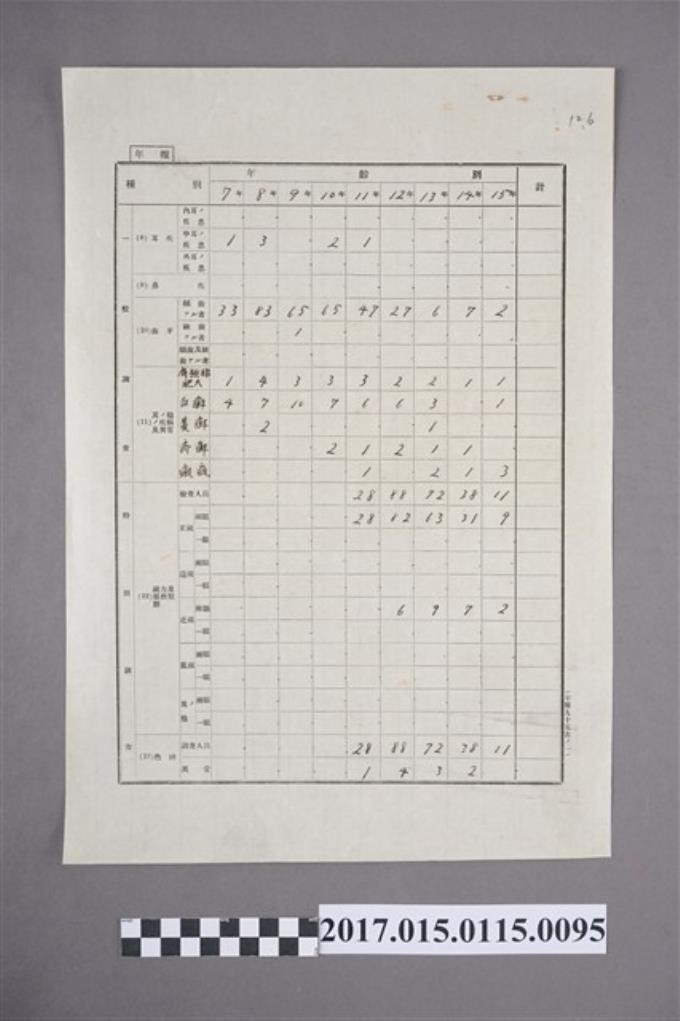 126
年報
種別 年齡別 計
7年 8年 9年 10年 11年 12年 13年 14年 15年
一般調查
(8) 耳疾
內耳ノ疾患
中耳ノ疾患 1 3 2 1
外耳ノ疾患
(9) 鼻疾
(10) 齒牙
齲齒アル者 33 83 65 65 47 27 6 7 2
缺齒アル者 1
齲齒及缺齒アル者
(11) 其ノ他ノ疾病及異常
扁桃腺肥大 1 4 3 3 3 2 2 1 1
白癬 4 7 10 7 6 6 3 1
黃癬 2 1
疥癬 2 1 2 1 1
1 2 1 3
特別調查
(12)
檢查人員 28 88 72 38 11
正視 兩眼 28 82 63 31 9
一眼
遠視 兩眼
一眼
近視 兩眼 6 9 7 2
一眼
亂視 兩眼
一眼
其ノ他 兩眼
一眼
(13) 色神
調查人員 28 88 72 38 11
異常 1 4 3 2
2017.015.0115.0095